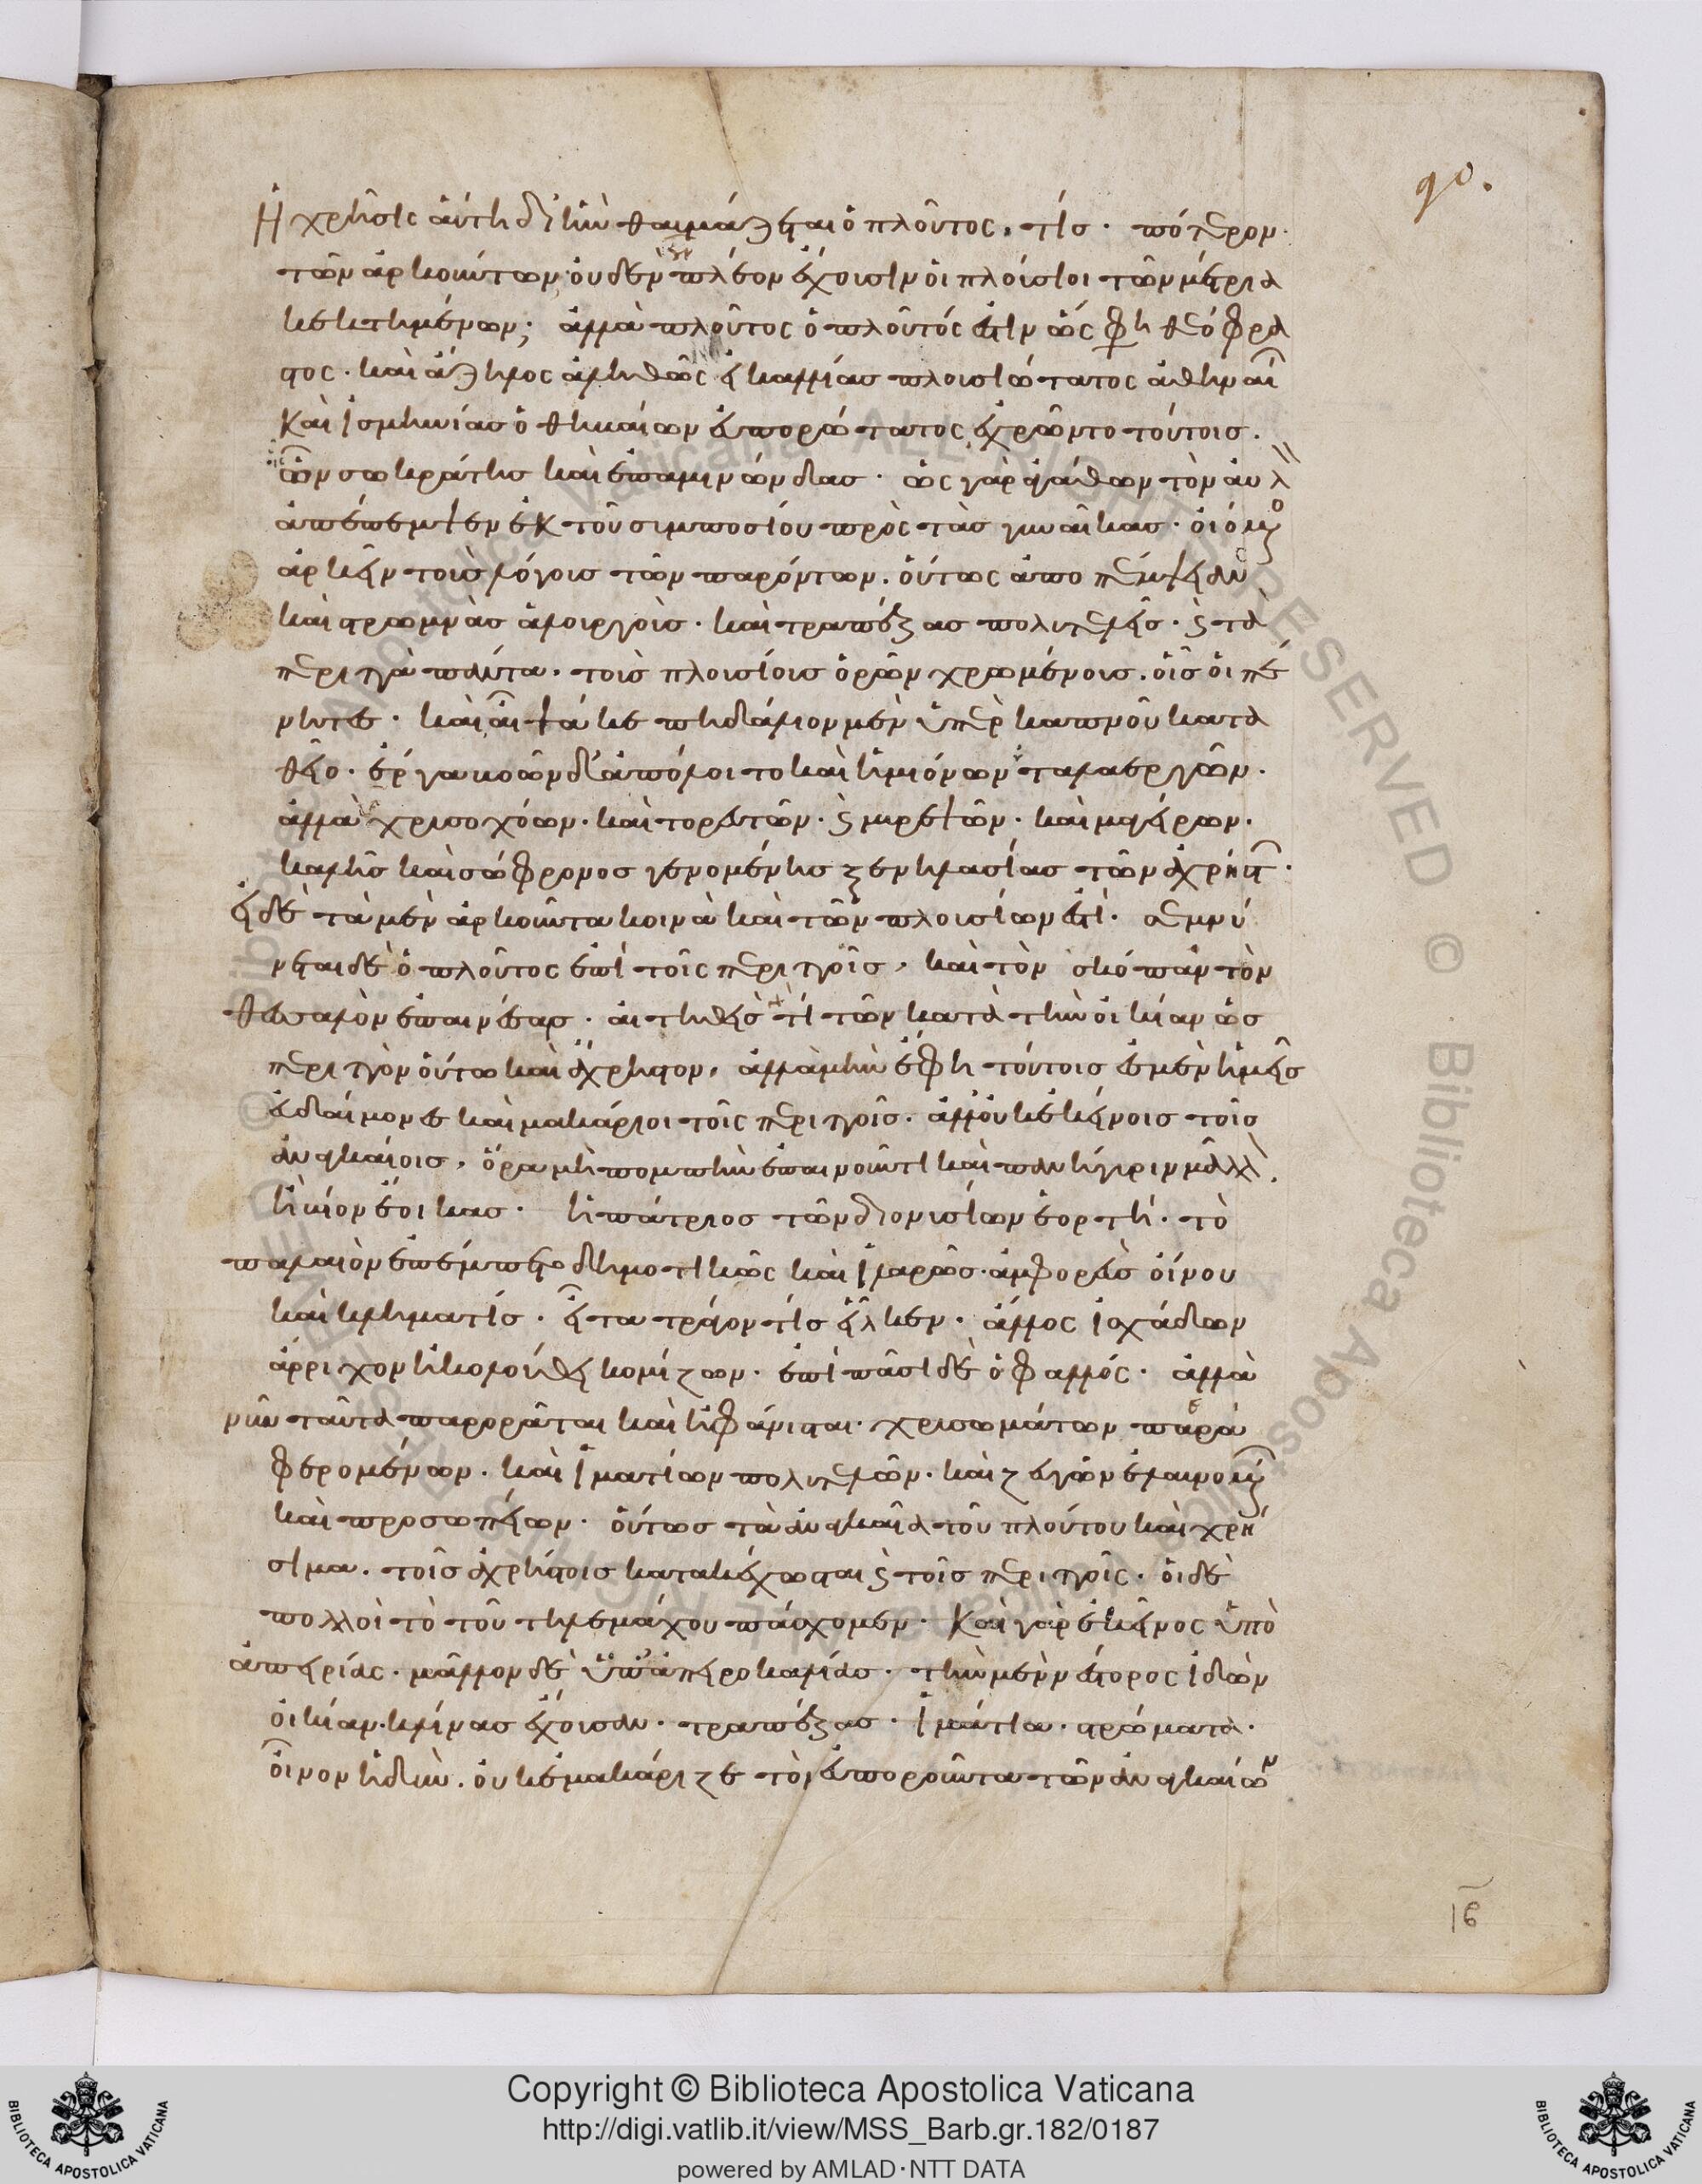 90.
Ἡ χρῆσις αὕτη δι' ἣν θαυμάζεται ὁ πλοῦτος, τίς. πότερον
τῶν ἀρκούντων; οὐδὲν πλέον ἔχουσιν οἱ πλούσιοι τῶν μέτρια
κεκτημένων; ἀλλὰ πλοῦτος ὁ πλοῦτός ἐστιν ὥς φη θεόφρα
στος. καὶ ἄζηλος ἀληθῶς εἰ καλλίας πλουσιώτατος ἀθηναί
Καὶ ἰσμηνίας ὁ θηβαίων εὐπορώτατος ἐχρῶντο τούτοις.
ὧν σωκράτης καὶ ἐπαμινώνδας. ὡς γὰρ ἀγάθων τὸν αὐλ
ἀπέπεμψεν ἐκ τοῦ συμποσίου πρὸς τὰς γυναῖκας. οἰόμ
ἀρκεῖν τοὺς λόγους τῶν παρόντων. οὕτως ἀποπέμψειεν
καὶ στρωμνὰς ἁλουργοὺς. καὶ τραπέζας πολυτελεῖς. καὶ τὰ
περιττὰ πάντα. τοὺς πλουσίους ὁρῶν χρωμένους. οἷς οἱ πέ
νητες. καὶ αἶψά κε πηδάλιον μὲν ὑπὲρ καπνοῦ κατα
θεῖο. ἔργα βοῶν δ' ἀπόλοιτο καὶ ἡμιόνων ταλαεργῶν.
ἀλλὰ χρυσοχόων. καὶ τορευτῶν. καὶ μυρεψῶν. καὶ μαγείρων.
καλῆς καὶ σώφρονος γενομένης ξενηλασίας τῶν ἀχρήστ.
εἰ δὲ τὰ μὲν ἀρκοῦντα κοινὰ καὶ τῶν πλουσίων ἐστί. σεμνύ
νεται δὲ ὁ πλοῦτος ἐπὶ τοῖς περιττοῖς, καὶ τὸν σκόπαν τὸν
θεσσαλὸν ἐπαινέσας. αἰτηθεὶς τὶ τῶν κατὰ τὴν οἰκίαν ὡς
περιττὸν οὕτω καὶ ἄχρηστον, ἀλλὰ μὴν ἔφη τούτοις ἐσμὲν ἡμεῖς
εὐδαίμονες καὶ μακάριοι τοῖς περιττοῖς. ἀλλ' οὐκ ἐκείνοις τοῖς
ἀναγκαίοις, ὅρα μὴ πομπὴν ἐπαινοῦντι καὶ πανήγυριν μᾶλλ
ἢ βίον ἔοικας. ἡ πάτριος τῶν διονυσίων ἑορτή. τὸ
παλαιὸν ἐπέμπετο δημοτικῶς καὶ ἱλαρῶς. ἀμφορεὺς οἴνου
καὶ κληματίς. εἶτα τράγον τίς εἷλκεν. ἄλλος ἰσχάδων
ἄρριχον ἠκολούθει κομίζων. ἐπὶ πᾶσι δὲ ὁ φαλλός. ἀλλὰ
νῦν ταῦτα παρορᾶται καὶ ἠφάνισται. χρυσωμάτων παρα
φερομένων. καὶ ἱματίων πολυτελῶν. καὶ ζευγῶν ἐλαυνομ
καὶ προσωπείων. οὕτως τὰ ἀναγκαῖα τοῦ πλούτου καὶ χρή
σιμα. τοῖς ἀχρήστοις κατακέχωσται καὶ τοῖς περιττοῖς. οἱ δὲ
πολλοὶ τὸ τοῦ τηλεμάχου πάσχομεν. Καὶ γὰρ ἐκεῖνος ὑπὸ
ἀπειρίας. μᾶλλον δὲ ὑπ' ἀπειροκαλίας. τὴν μὲν νέστορος ἰδὼν
οἰκίαν. κλίνας ἔχουσαν. τραπέζας. ἱμάτια. στρώματα.
οἶνον ἡδὺν. οὐκ ἐμακάριζε τὸν εὐποροῦντα τῶν ἀναγκαίων
16
Copyright © Biblioteca Apostolica Vaticana
http://digi.vatlib.it/view/MSS_Barb.gr.182/0187
powered by AMLAD·NTT DATA
BIBLIOTECA APOSTOLICA VATICANA
BIBLIOTECA APOSTOLICA VATICANA